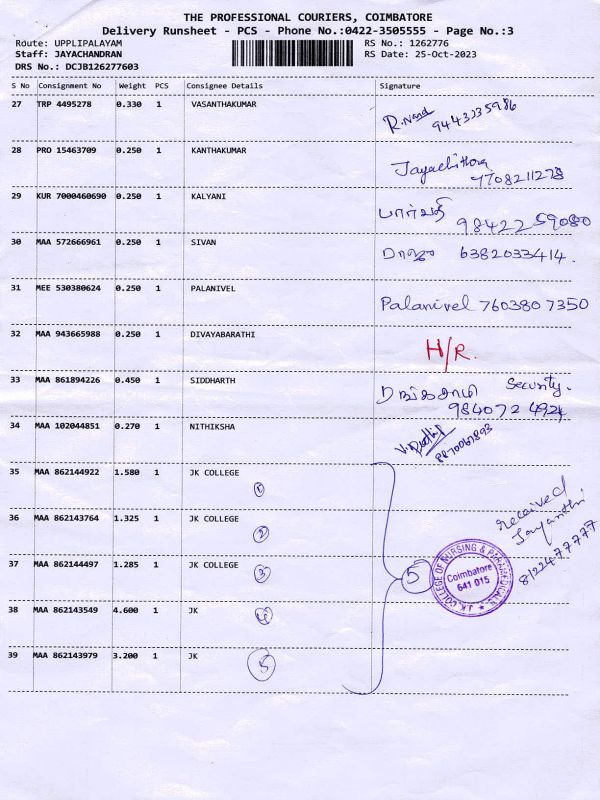 THE PROFESSIONAL COURIERS, COIMBATORE
Delivery Runsheet - PCS - Phone No.:0422-3505555 - Page No.:3
Route: UPPLIPALAYAM RS No.: 1262776
Staff: JAYACHANDRAN RS Date: 25-Oct-2023
DRS No.: DCJB126277603
S No Consignment No Weight PCS Consignee Details Signature
27 TRP 4495278 0.330 1 VASANTHAKUMAR R.Nand
9443235986
28 PRO 15463709 0.250 1 KANTHAKUMAR Jayachithra
7708211278
29 KUR 7000460690 0.250 1 KALYANI பார்வதி
9842259080
30 MAA 572666961 0.250 1 SIVAN ராஜு 6382033414.
31 MEE 530380624 0.250 1 PALANIVEL Palanivel 7603807350
32 MAA 943665988 0.250 1 DIVAYABARATHI H/R.
33 MAA 861894226 0.450 1 SIDDHARTH Security.
984072 4924
34 MAA 102044851 0.270 1 NITHIKSHA
8870067893
35 MAA 862144922 1.580 1 JK COLLEGE
1
36 MAA 862143764 1.325 1 JK COLLEGE
2
37 MAA 862144497 1.285 1 JK COLLEGE
3
38 MAA 862143549 4.600 1 JK
4
39 MAA 862143979 3.200 1 JK
5
5
J.K. COLLEGE OF NURSING & PARAMEDICALS
Coimbatore
641 015
received
Jayanthi
8122477777